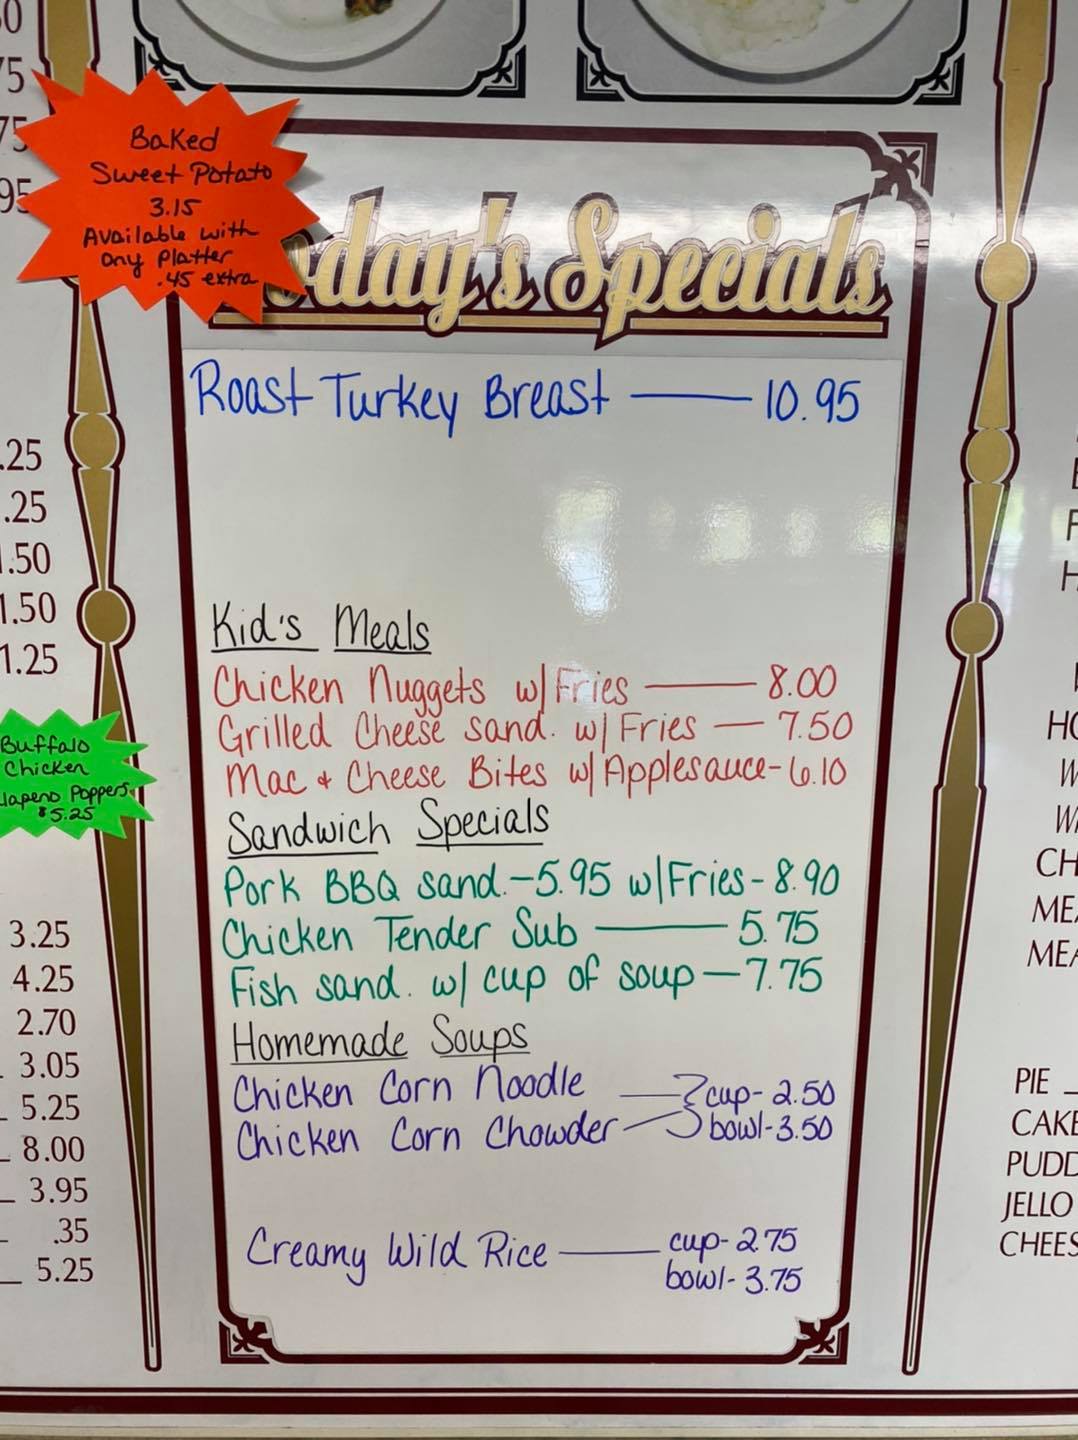 Baked
Sweet Potato
3.15
Available with
any platter
.45 extra
Today's Specials
Roast Turkey Breast — 10.95
Kid's Meals
Chicken Nuggets w/ Fries — 8.00
Grilled Cheese sand. w/ Fries — 7.50
Mac & Cheese Bites w/ Applesauce - 6.10
Sandwich Specials
Pork BBQ sand. - 5.95 w/ Fries - 8.90
Chicken Tender Sub — 5.75
Fish sand. w/ cup of soup — 7.75
Homemade Soups
Chicken Corn Noodle — cup - 2.50
Chicken Corn Chowder — bowl - 3.50
Creamy Wild Rice — cup - 2.75
bowl - 3.75
.25
.25
1.50
1.50
1.25
Buffalo
Chicken
Jalapeno Poppers
$5.25
3.25
4.25
2.70
3.05
5.25
8.00
3.95
.35
5.25
PIE
CAKE
PUDD
JELLO
CHEES